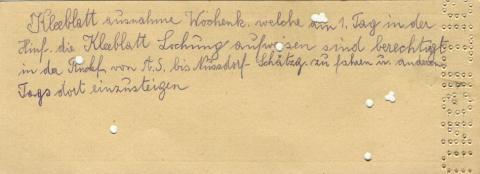 Kleeblatt ausnahme Wochenk. welche am 1. Tag in der
Hinf. die Kleeblatt Lochung aufweisen sind berechtigt
in der Rückf. von A.S. bis Nussdorf- Schätzg. zu fahren u. anderen
Tags dort einzusteigen